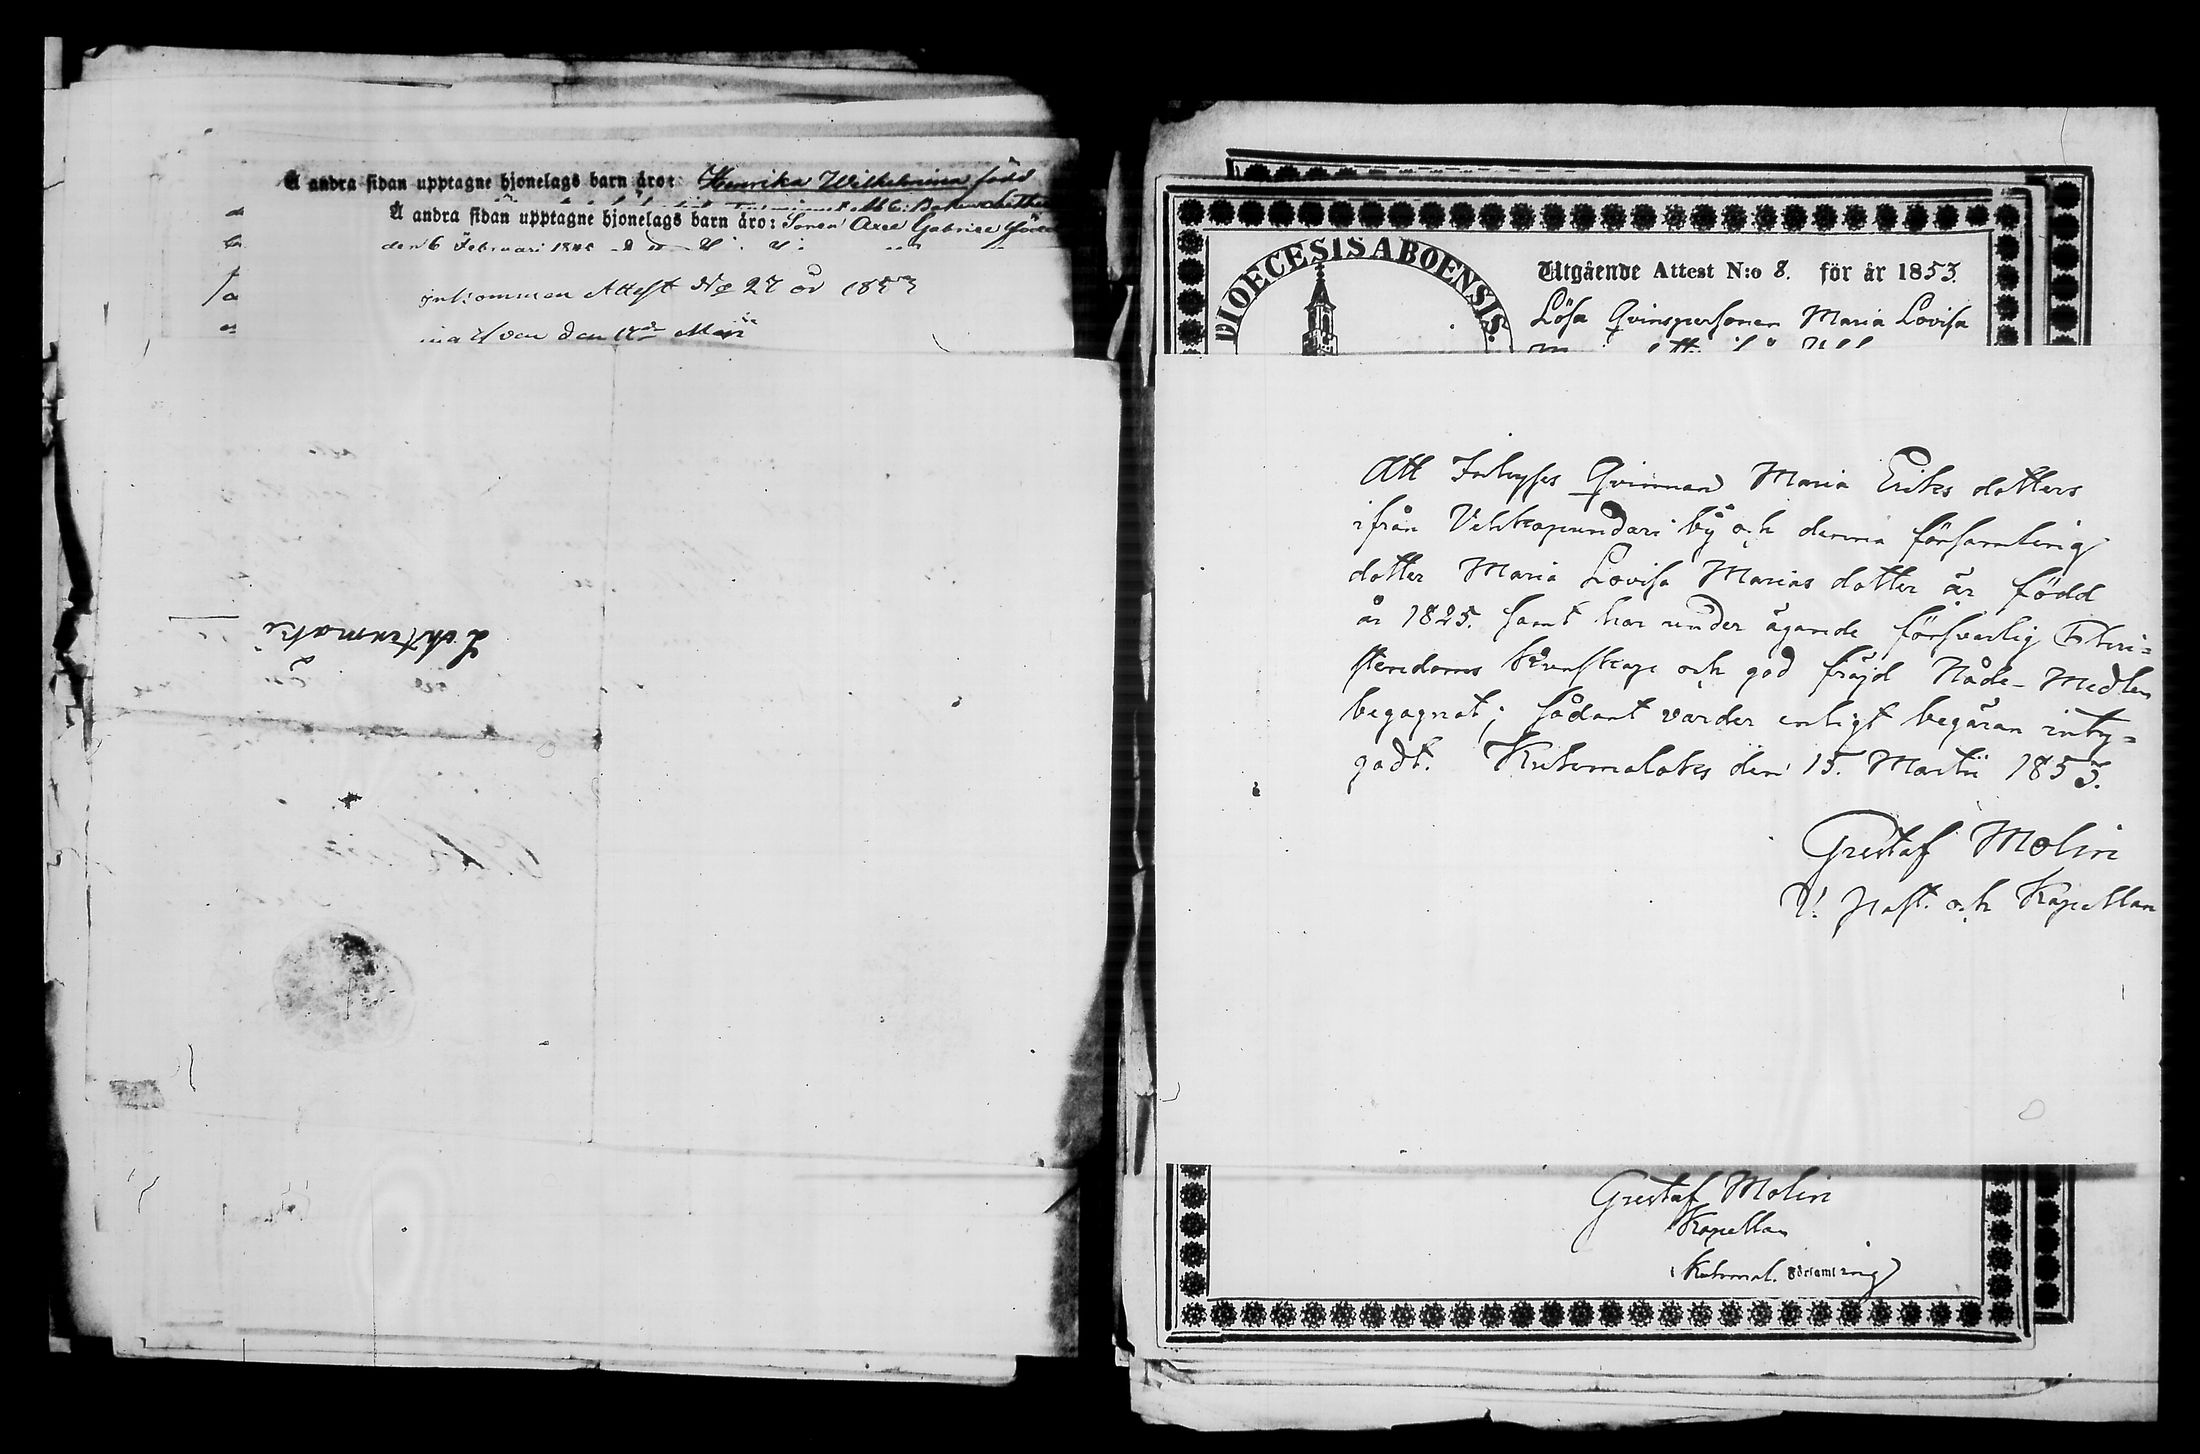 Å andra sidan upptagne hjonelags barn äro: Henrika Wilhelmina född
Å andra sidan upptagne hjonelags barn äro: Sonen Axel Gabriel född
den 6 Februari
Inkommen Attest No 27 år 1853
den 18de Maji
Lehtenmäki
DIOECESIS ABOENSIS.
Utgående Attest N:o 8. för år 1853.
Lösa Qvinspersonen Maria Lovisa
Att Inhyses Qvinnan Maria Eriks dotters
ifrån by och denna församling
dotter Maria Lovisa Marias dotter är född
år 1825. samt har under ägande försvarlig Chri=
stendoms kunskap och god fräjd Nåde-Medlen
begagnat; sådant varder enligt begäran inty=
gadt. Kiukomalaks den 15. Martii 1853.
Gustaf Molin
V. Past. och Kapellan
Gustaf Molin
Kapellan
i församling